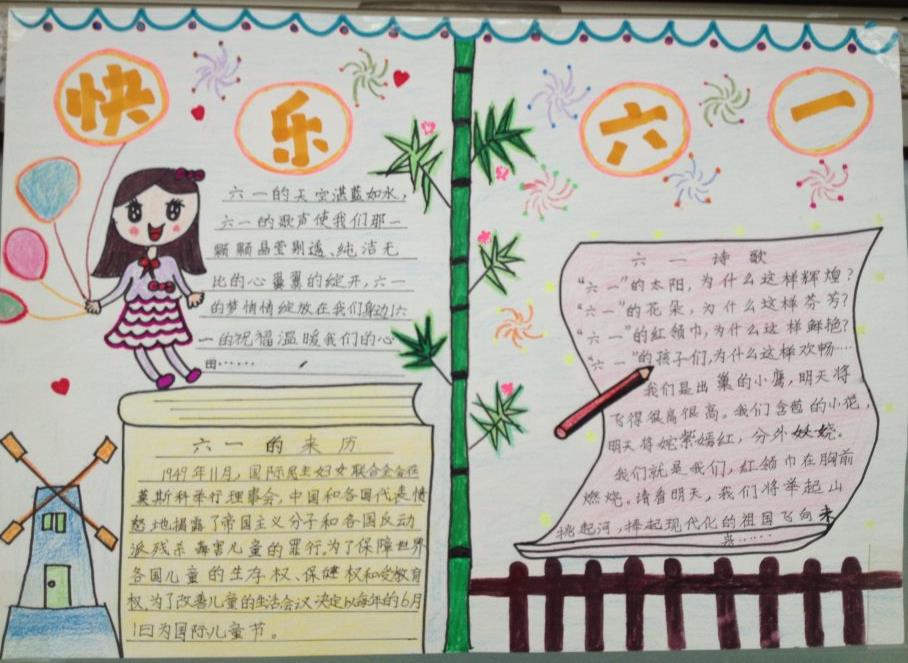 快乐六一
六一的天空湛蓝如水,
六一的歌声使我们那一
颗颗晶莹剔透、纯洁无
比的心翼翼的绽开,六一
的梦情情绽放在我们身边六
一的祝福温暖我们的心
田……
六一的来历
1949年11月,国际民主妇女联合会会在
莫斯科举行理事会,中国和各国代表愤
怒地揭露了帝国主义分子和各国反动
派残杀毒害儿童的罪行,为了保障世界
各国儿童的生存权、保健权和受教育
权,为了改善儿童的生活会议决定以每年的6月
1日为国际儿童节。
六一诗歌
“六一”的太阳,为什么这样辉煌?
“六一”的花朵,为什么这样芬芳?
“六一”的红领巾,为什么这样鲜艳?
“六一”的孩子们,为什么这样欢畅……
我们是出巢的小鹰,明天将
飞得很高很高。我们含苞的小花,
明天将姹紫嫣红,分外妖娆。
我们就是我们,红领巾在胸前
燃烧。请看明天,我们将举起山
挑起河,捧起现代化的祖国飞向未
来……